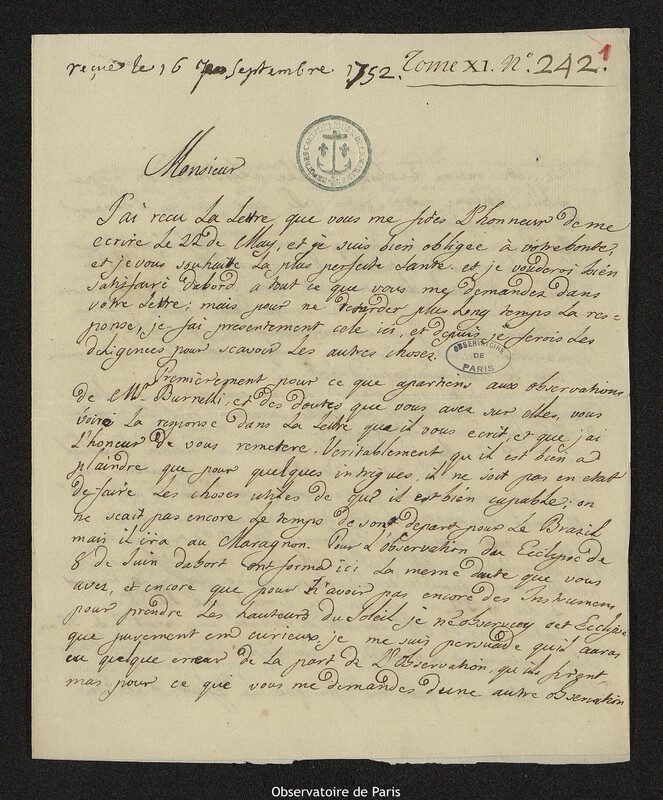 reçue le 16 7bre Septembre 1752. Tome XI. N.º 242. 1
Monsieur
J'ai recu La Lettre que vous me fites L'honneur de me
ecrire Le 22 de May, et je suis bien obligée à votre bonte,
et je vous souhaite La plus perfecte sante. et je vouderoi bien
satisfaire dabord a tout ce que vous me demandez dans
votre Lettre; mais pour ne retarder plus Long temps La res=
ponse, je fai presentement cete ici, et depuis je ferois Les
deligences pour scavoir Les autres choses.
OBSERVATOIRE
DE
PARIS
Premierement pour ce que apartiens aux observations
de Mr. Burnelli, et des doutes que vous avez sur elles, vous
voirè La response dans La Lettre que il vous ecrit, et que j'ai
L'honeur de vous remetere. Veritablement qu'il est bien a
plaindre que pour quelques intrigues, il ne soit pas en etat
de faire Les choses utiles de que il est bien capable; on
ne scait pas encore Le temps de son depart pour Le Brazil
mais il ira au Maragnon. Pour L'observation du Ecclypse de
8 de Juin dabort ont formà ici La meme doute que vous
avez, et encore que pour n'avoir pas encore des Instrumens
pour prendre Les hauteurs du Soleil je ne observè cet Ecclipse
que purement en curieux, je me suis persuade qu'il auras
eu quelque erreur de La part de L'Observation, qu'ils firent,
mas pour ce que vous me demandes d'une autre observation
Observatoire de Paris